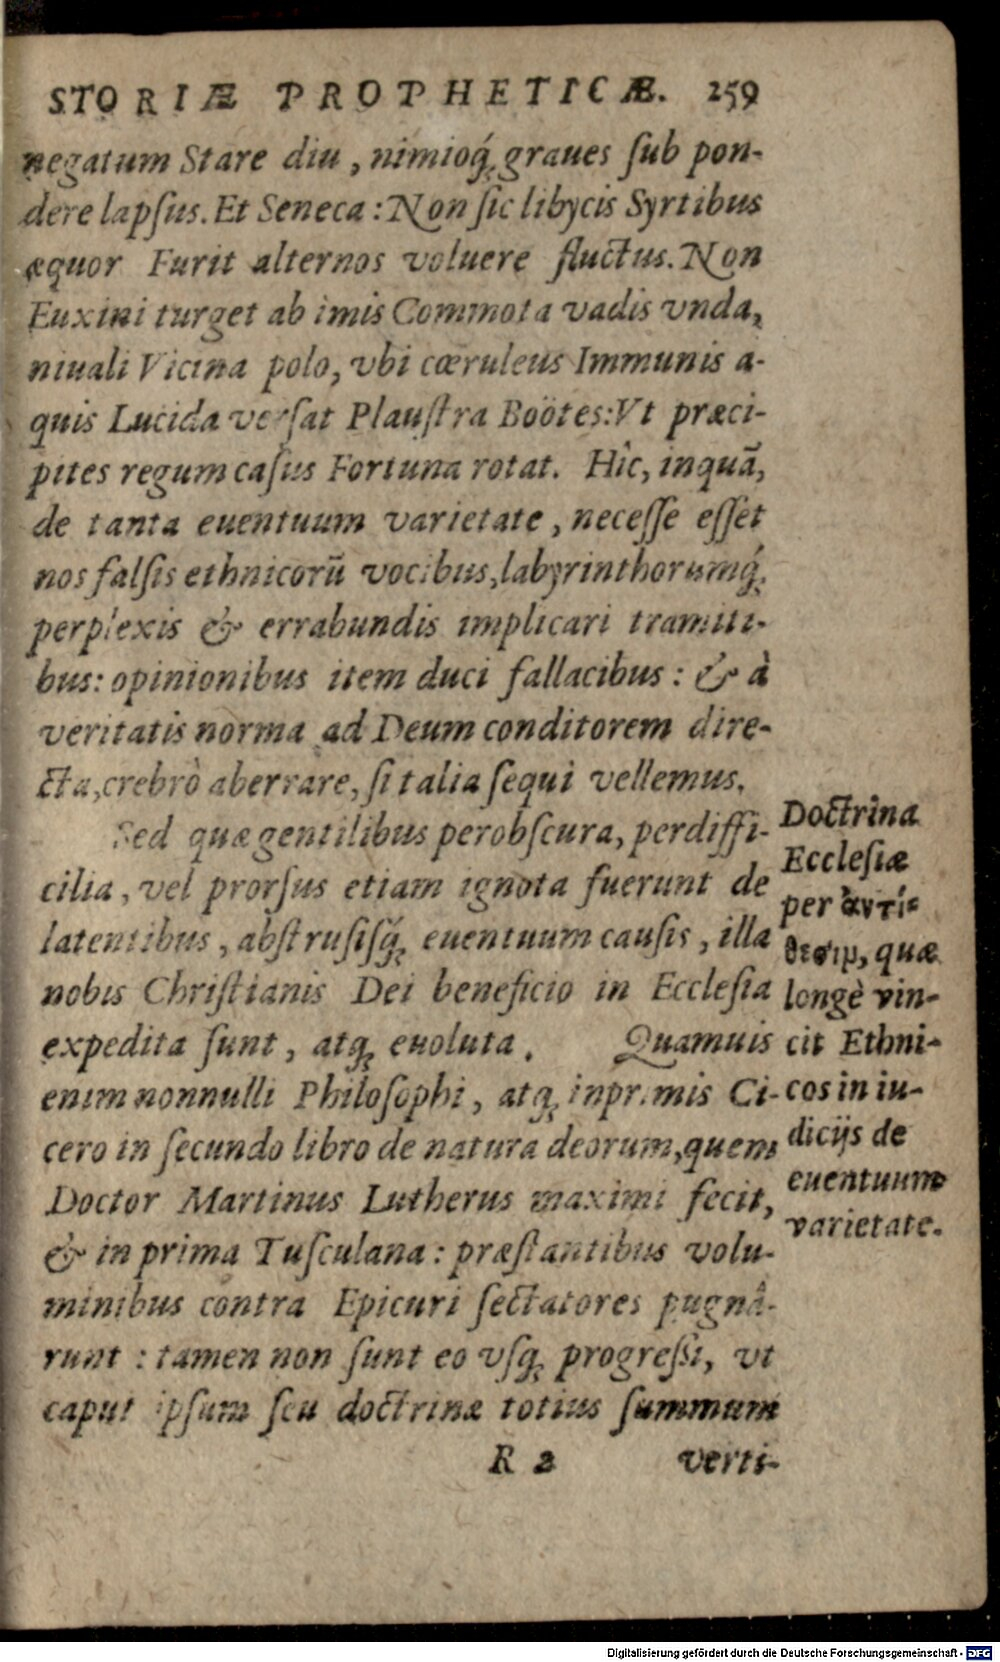 STORIÆ PROPHETICÆ. 259
negatum Stare diu, nimioq́; graues ſub pon-
dere lapſus. Et Seneca: Non ſic libycis Syrtibus
æquor Furit alternos voluere fluctus. Non
Euxini turget ab imis Commota vadis vnda,
niuali Vicina polo, vbi cœruleus Immunis a-
quis Lucida verſat Plauſtra Boötes: Vt præci-
pites regum caſus Fortuna rotat. Hîc, inquā,
de tanta euentuum varietate, neceſſe eſſet
nos falſis ethnicorū vocibus, labyrinthorumq́;
perplexis & errabundis implicari tramiti-
bus: opinionibus item duci fallacibus: & à
veritatis norma ad Deum conditorem dire-
cta, crebrò aberrare, ſi talia ſequi vellemus.
Sed quæ gentilibus perobſcura, perdiffi-
cilia, vel prorſus etiam ignota fuerunt de
latentibus, abſtruſiſq́; euentuum cauſis, illa
nobis Chriſtianis Dei beneficio in Eccleſia
expedita ſunt, atq; euoluta. Quamuis
enim nonnulli Philoſophi, atq; inprimis Ci-
cero in ſecundo libro de natura deorum, quem
Doctor Martinus Lutherus maximi fecit,
& in prima Tuſculana: præſtantibus volu-
minibus contra Epicuri ſectatores pugnâ-
runt: tamen non ſunt eo vſq; progreſſi, vt
caput ipſum ſeu doctrinæ totius ſummum
R 2 verti-
Doctrina
Eccleſiæ
per ἀντί-
θεσιμ, quæ
longè vin-
cit Ethni-
cos in iu-
dicijs de
euentuum
varietate.
Digitalisierung gefördert durch die Deutsche Forschungsgemeinschaft - DFG